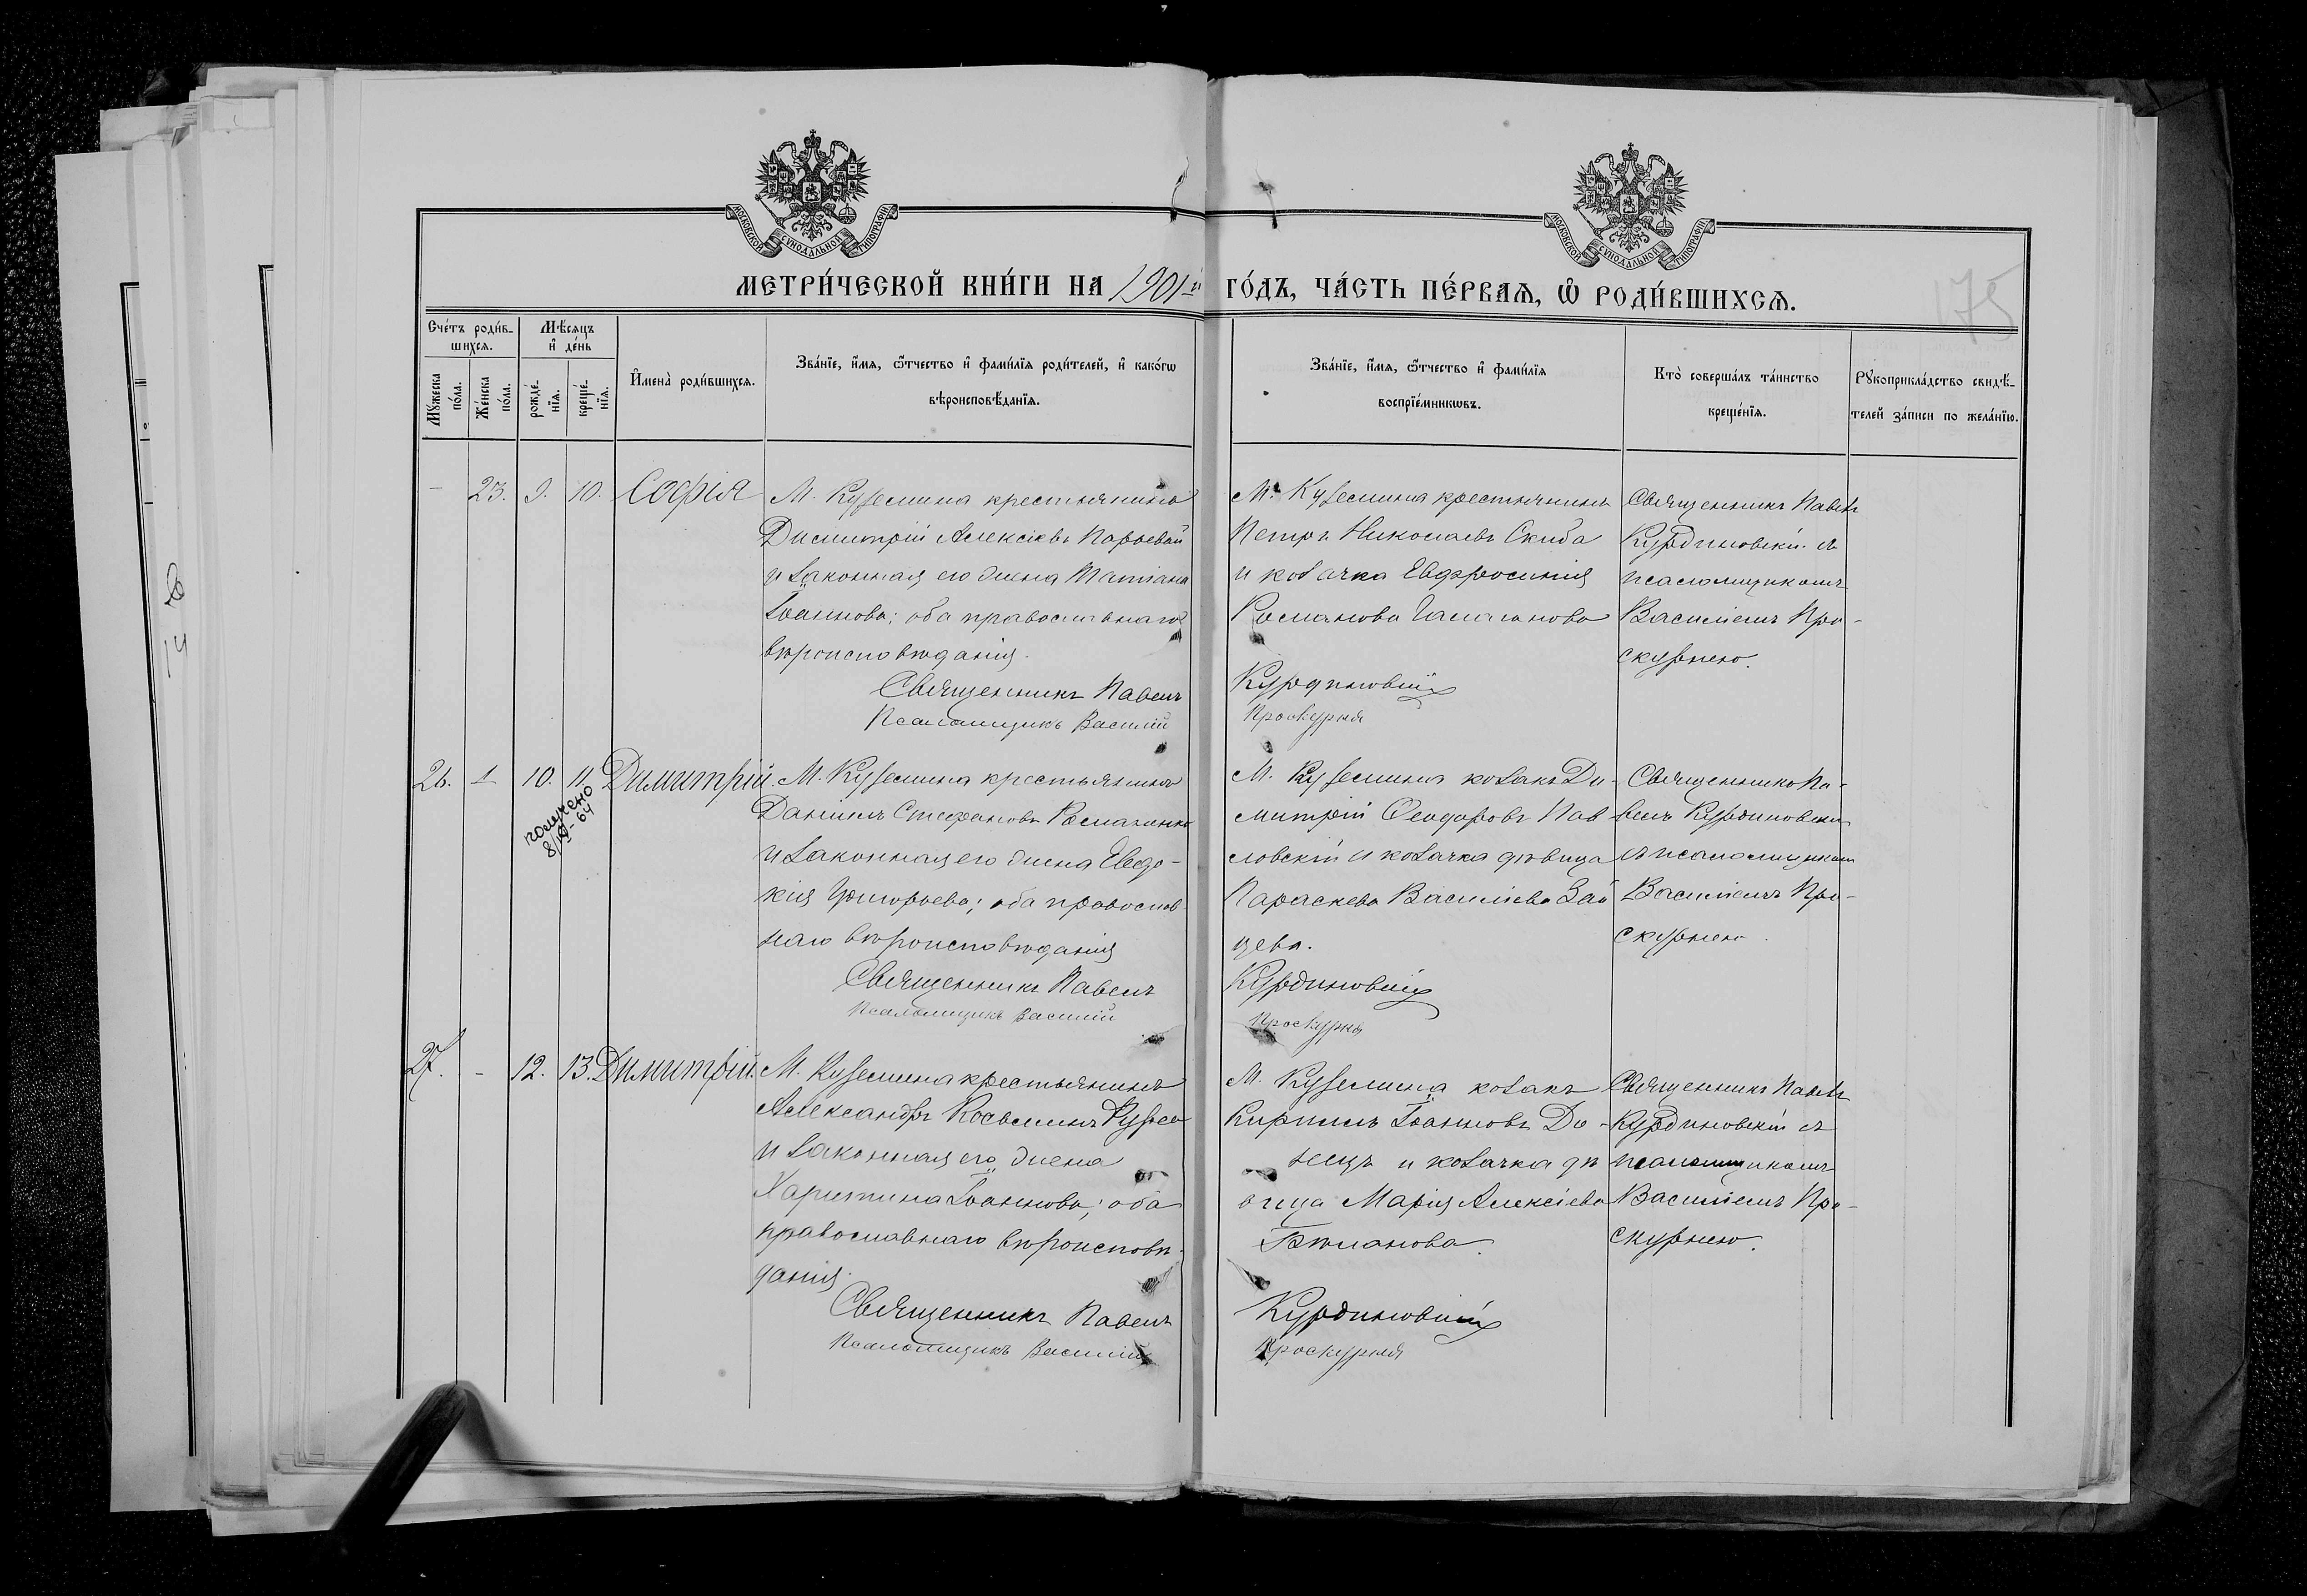 МОСКОВСКОЙ СѴНОДАЛЬНОЙ ТИПОГРАФІИ
МОСКОВСКОЙ СѴНОДАЛЬНОЙ ТИПОГРАФІИ
МЕТРИ́ЧЕСКОЙ КНИ́ГИ НА 1901й ГО́ДЪ, ЧА́СТЬ ПЕ́РВАѦ, Ѽ РОДИ́ВШИХСѦ.
175
Сче́тъ роди́в-
шихсѧ.
Мѣ́сѧцъ
и҆ де́нь
Мꙋ́жеска
по́ла.
Же́нска
по́ла.
рожде́-
нїѧ.
креще́-
нїѧ.
И҆мена̀ роди́вшихсѧ.
Зва́нїе, и҆́мѧ, ѻ҆́тчество и҆ фами́лїѧ роди́телей, и҆ како́гѡ
вѣроисповѣ́данїѧ.
Зва́нїе, и҆́мѧ, ѻ҆́тчество и҆ фами́лїѧ
воспрїе́мникѡвъ.
Кто̀ соверша́лъ та́инство
креще́нїѧ.
Рꙋкоприкла́дство свидѣ́-
телей за́писи по жела́нїю.
— 23. 9. 10. Софія
М. Куземина крестьянинъ
Димитрій Алексіевъ
и законная его жена Татіана
Іоаннова; оба православнаго
вѣроисповѣданія.
Священникъ Павелъ
Псаломщикъ Василій
М. Куземина крестьянинъ
Петръ Николаевъ Скиба
и козачка Евфросинія
Романова
Курдиновскій
Проскурня
Священникъ Павелъ
Курдиновскій съ
псаломщикомъ
Василіемъ Про-
скурнею.
26. — 10. 11. Димитрій.
получено
64
М. Куземина крестьянинъ
Даніилъ Стефановъ Романенко
и законная его жена Евдо-
кія Григорьева; оба православ-
наго вѣроисповѣданія
Священникъ Павелъ
Псаломщикъ Василій
М. Куземина козакъ Ди-
митрій Ѳеодоровъ Пав
ловскій и козачка дѣвица
Параскева Василіева Зай
цева.
Курдиновскій
Проскурня
Священникъ Па-
велъ Курдиновскій
съ псаломщикомъ
Василіемъ Про-
скурнею.
27. — 12. 13. Димитрій.
М. Куземина крестьянинъ
Александръ Косьминъ
и законная его жена
Харитина Іоаннова; оба
православнаго вѣроисповѣ-
данія.
Священникъ Павелъ
Псаломщикъ Василій
М. Куземина козакъ
Кириллъ Іоанновъ До-
нецъ и козачка дѣ
вица Марія Алексіева
Бѣланова.
Курдиновскій
Проскурня
Священникъ Павелъ
Курдиновскій съ
псаломщикомъ
Василіемъ Про-
скурнею.